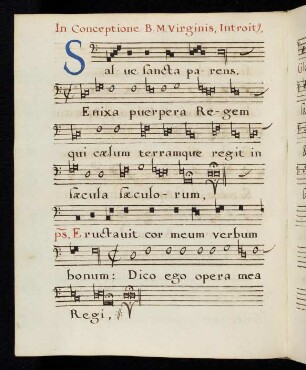 In Conceptione B. M. Virginis, Introit9,
Sal ue sancta pa-rens.
Enixa puerpera Re-gem
qui cælum terramque regit in
sæcula sæculo-rum,
ps. Eructauit cor meum verbum
bonum: Dico ego opera mea
Regi,